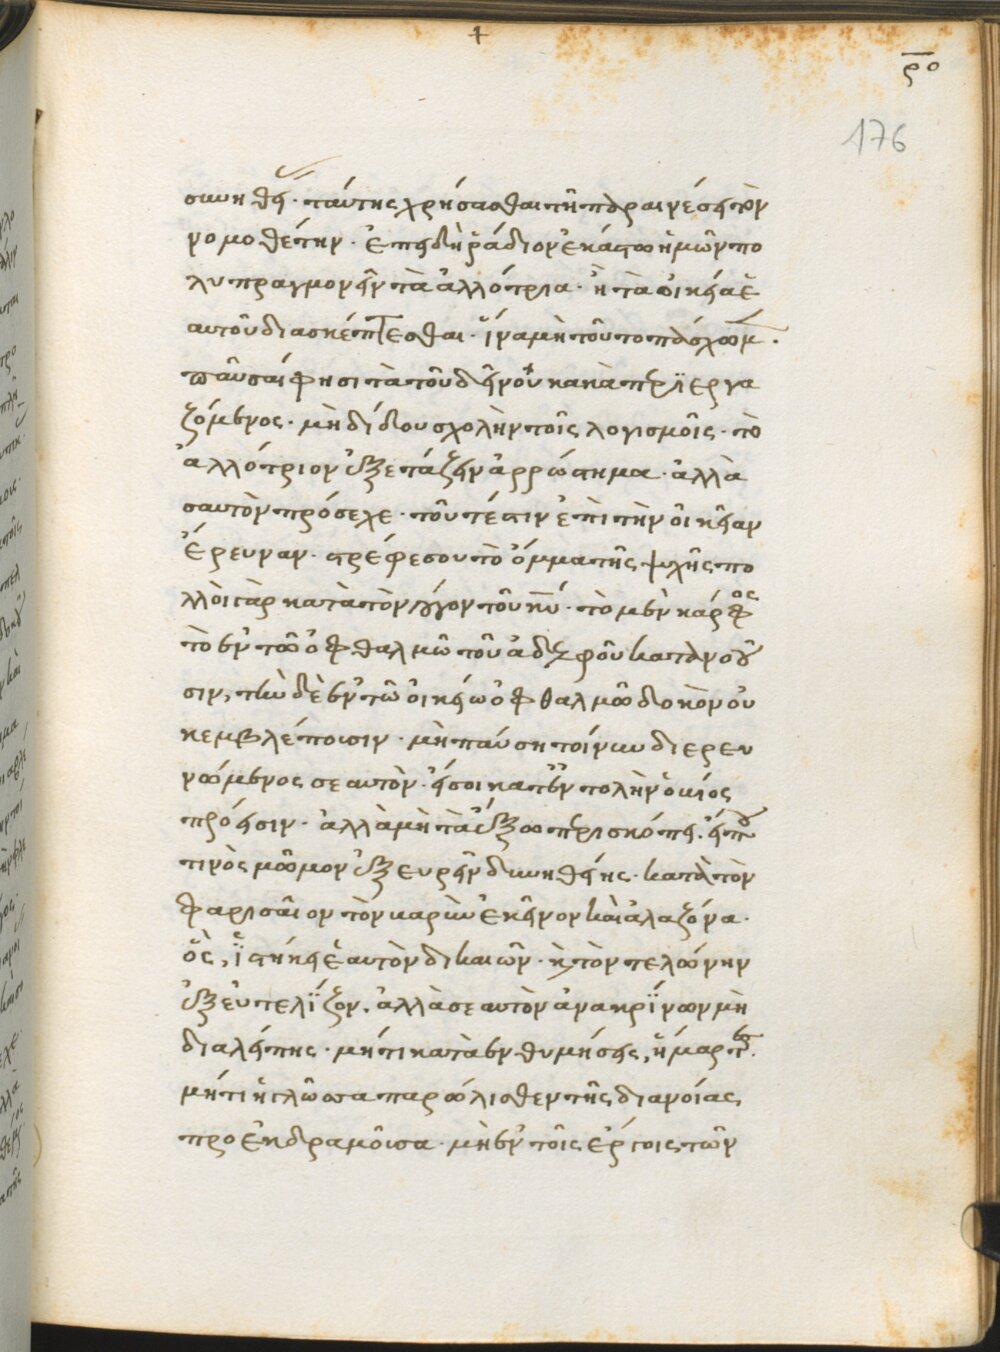 ρο
176
συνηθεί· ταύτης χρήσασθαι τῆ παραινέσει τὸν
νομοθέτην· ἐπειδὴ ῥάδιον ἑκάστω ἡμῶν πο
λυπραγμονεῖν τὰ ἀλλότρια· ἢ τὰ οἰκεῖα ἑ
αυτοῦ διασκέπτεσθαι· ἵνα μὴ τοῦτο πάσχωμ(εν)·
παῦσαι φησὶ τὰ τοῦ δεῖνος κακὰ περιεργα
ζόμενος· μὴ δίδου σχολὴν τοῖς λογισμοῖς· τὸ
ἀλλότριον ἐξετάζειν ἀρρώστημα· ἀλλὰ
σαυτὸν πρόσεχε· τουτέστιν ἐπὶ τὴν οἰκείαν
ἔρευναν· στρέφε σου τὸ ὄμμα τῆς ψυχῆς πο
λλοὶ γὰρ κατὰ τὸν λόγον τοῦ κυ· τὸ μὲν κάρφος
τὸ ἐν τῶ ὀφθαλμῶ τοῦ ἀδελφοῦ κατανοοῦ
σιν, τὴν δὲ ἐν τῶ οἰκείω ὀφθαλμῶ δοκὸν οὐ
κ ἐμβλέπουσιν· μὴ παύση τοίνυν διερευ
νώμενος σεαυτὸν· εἴ σοι κατ' ἐντολὴν ὁ βίος
πρόεισιν· ἀλλὰ μὴ τὰ ἔξω περισκόπει· εἴ που
τινὸς μῶμον ἐξευρεῖν δυνηθείης· κατὰ τὸν
φαρισαῖον τὸν βαρὺν ἐκεῖνον καὶ ἀλαζόνα·
ὃς, εἱστήκει ἑαυτὸν δικαιῶν· κ(αὶ) τὸν τελώνην
ἐξευτελίζων· ἀλλὰ σεαυτὸν ἀνακρίνων μὴ
διαλείπης· μήτι κατὰ ἐνθυμήσεις, ἥμαρτες·
μήτι ἡ γλῶσσα παρωλίσθεν τῆς διανοίας
προεκδραμοῦσα· μὴ ἐν τοῖς ἔργοις τῶν